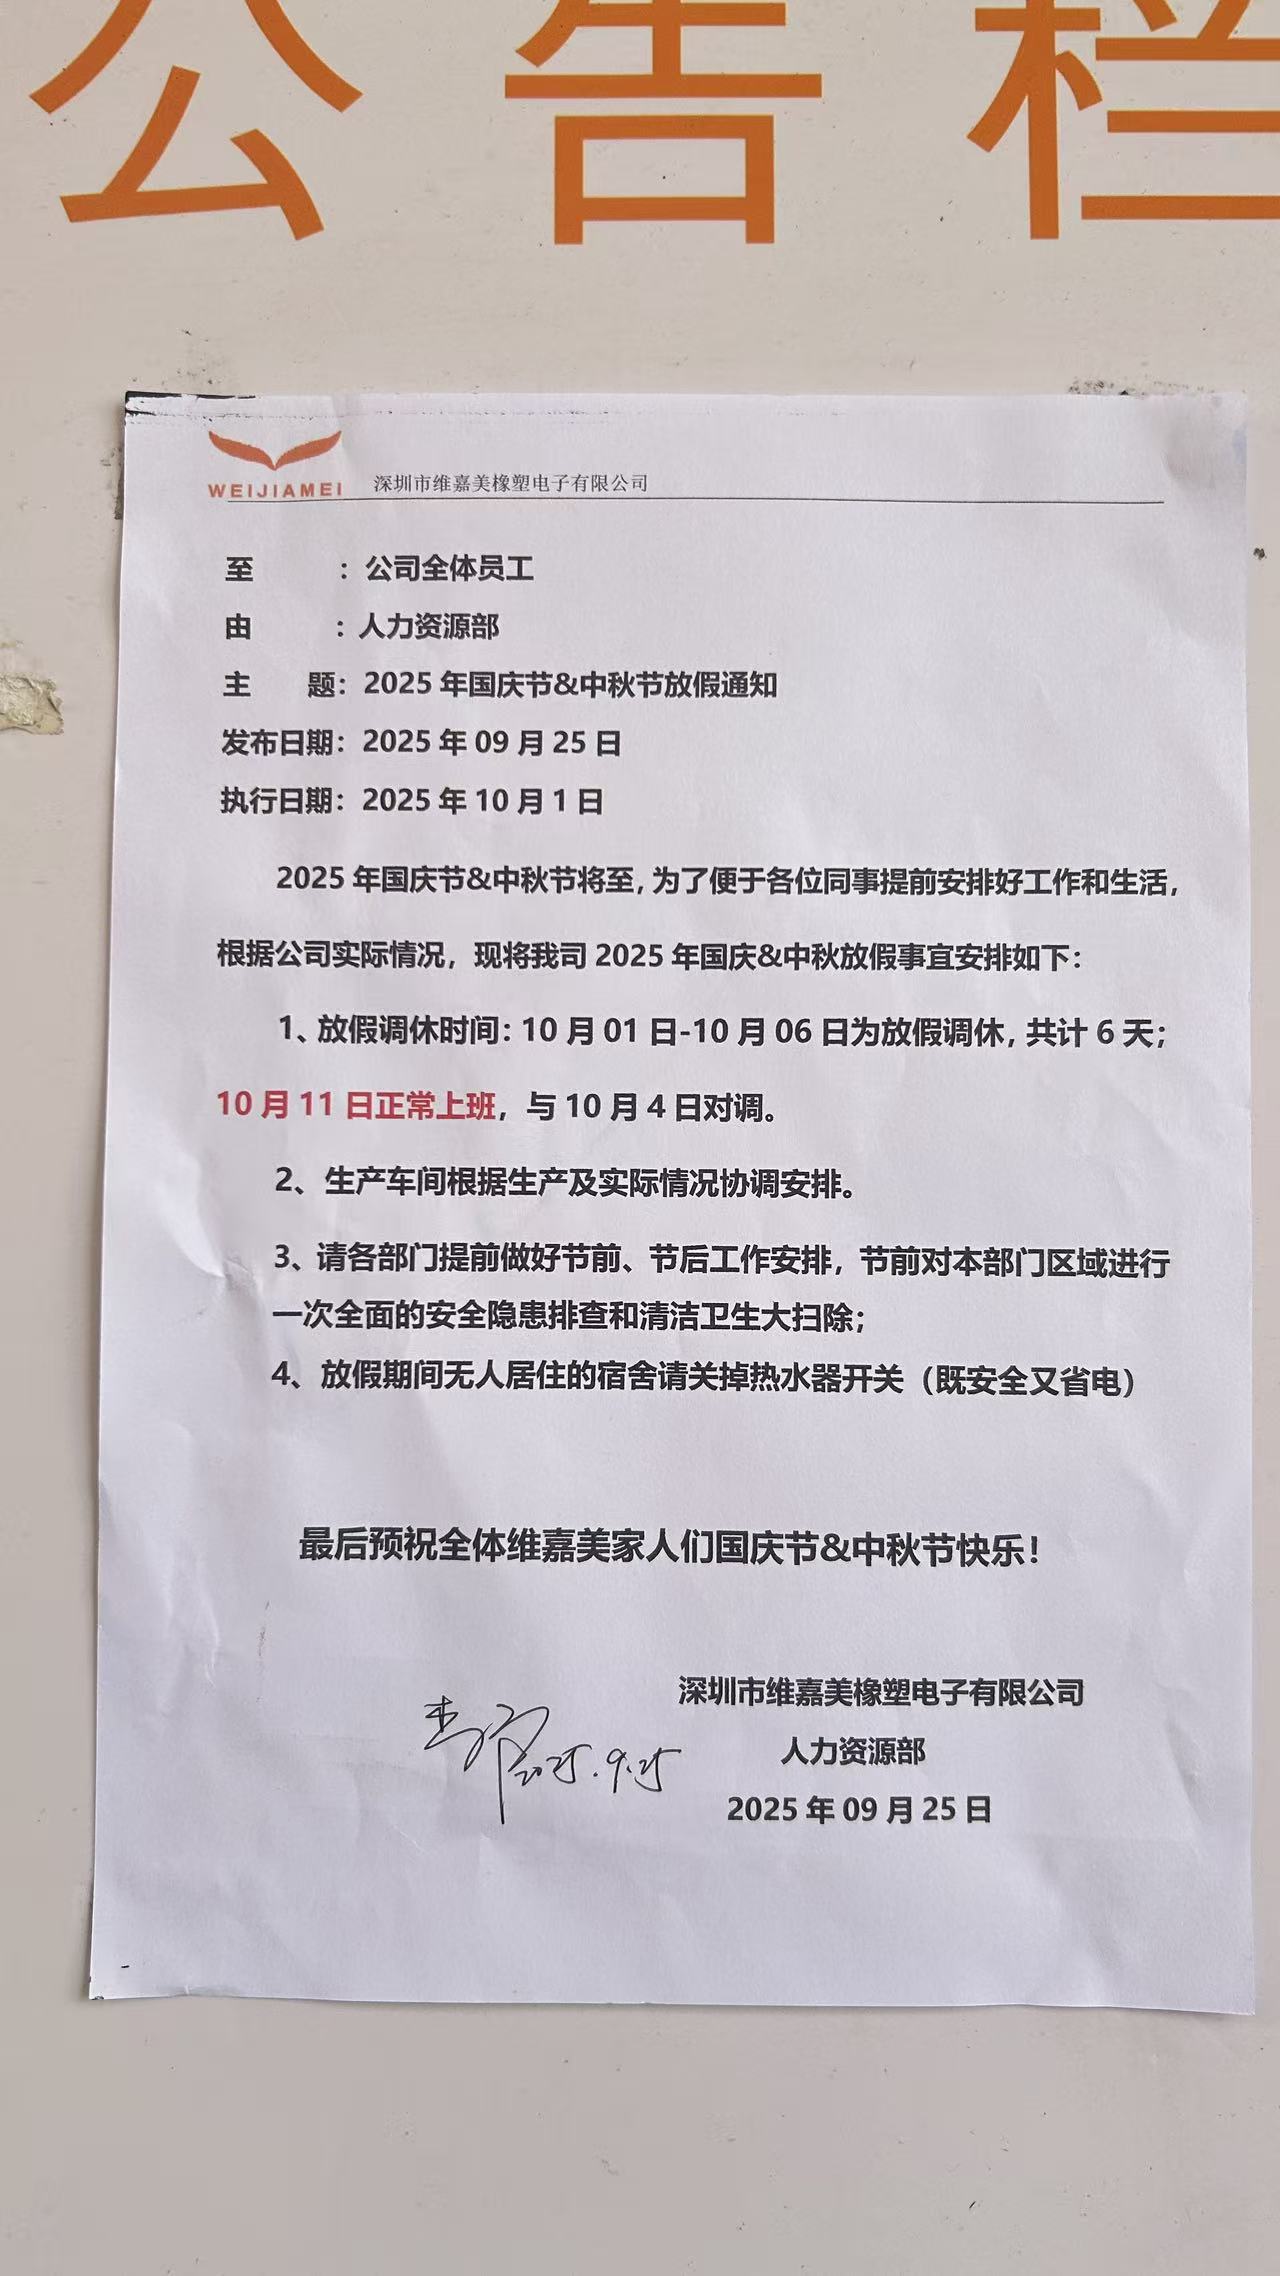 公告栏
WEIJIAMEI 深圳市维嘉美橡塑电子有限公司
至：公司全体员工
由：人力资源部
主题：2025年国庆节&中秋节放假通知
发布日期：2025年09月25日
执行日期：2025年10月1日
2025年国庆节&中秋节将至，为了便于各位同事提前安排好工作和生活，
根据公司实际情况，现将我司2025年国庆&中秋放假事宜安排如下：
1、放假调休时间：10月01日-10月06日为放假调休，共计6天；
10月11日正常上班，与10月4日对调。
2、生产车间根据生产及实际情况协调安排。
3、请各部门提前做好节前、节后工作安排，节前对本部门区域进行
一次全面的安全隐患排查和清洁卫生大扫除；
4、放假期间无人居住的宿舍请关掉热水器开关（既安全又省电）
最后预祝全体维嘉美家人们国庆节&中秋节快乐！
深圳市维嘉美橡塑电子有限公司
人力资源部
2025.9.25
2025年09月25日